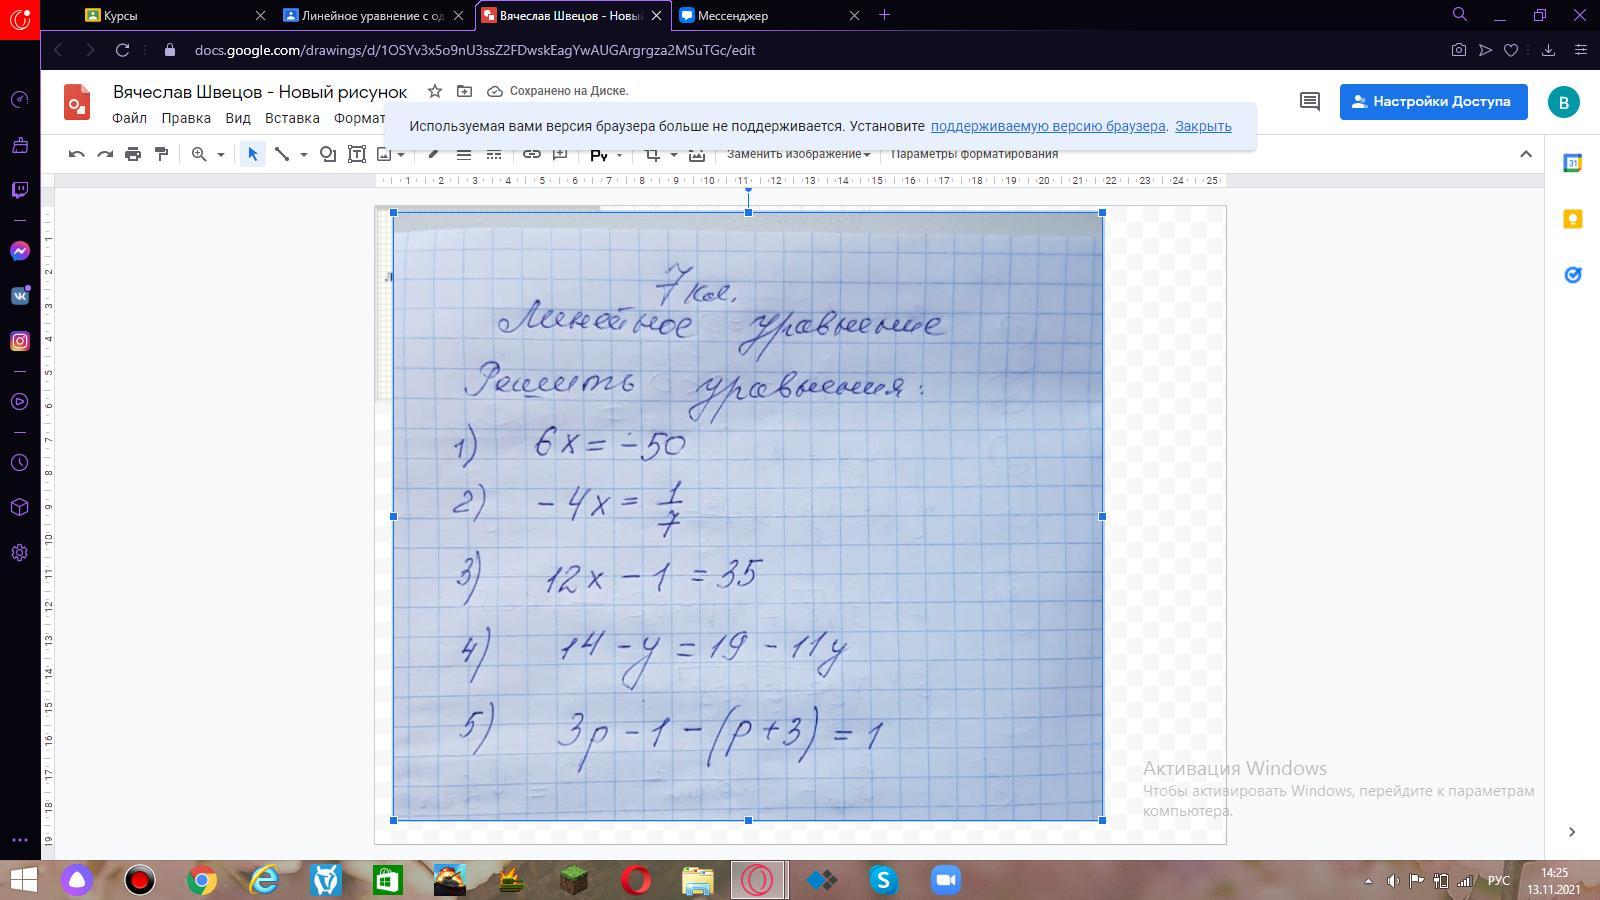 Курсы
Линейное уравнение с од
Вячеслав Швецов - Новый
Мессенджер
docs.google.com/drawings/d/1OSYv3x5o9nU3ssZ2FDwskEagYwAUGArgrgza2MSuTGc/edit
Вячеслав Швецов - Новый рисунок
Сохранено на Диске.
Настройки Доступа
В
Файл Правка Вид Вставка Формат
Используемая вами версия браузера больше не поддерживается. Установите поддерживаемую версию браузера. Закрыть
Заменить изображение Параметры форматирования
1 2 3 4 5 6 7 8 9 10 11 12 13 14 15 16 17 18 19 20 21 22 23 24 25
1 2 3 4 5 6 7 8 9 10 11 12 13 14 15 16 17 18 19
31
7 кл.
Линейное уравнение
Решить уравнения:
1) 6x = -50
2) -4x = 1/7
3) 12x - 1 = 35
4) 14 - y = 19 - 11y
5) 3p - 1 - (p + 3) = 1
Активация Windows
Чтобы активировать Windows, перейдите к параметрам
компьютера.
РУС
14:25
13.11.2021